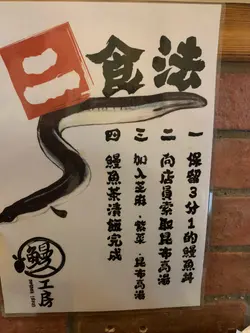 二食法
一 保留3分1的鰻魚丼
二 向店員索取昆布高湯
三 加入芝麻，紫菜，昆布高湯
四 鰻魚茶漬飯完成
鰻工房